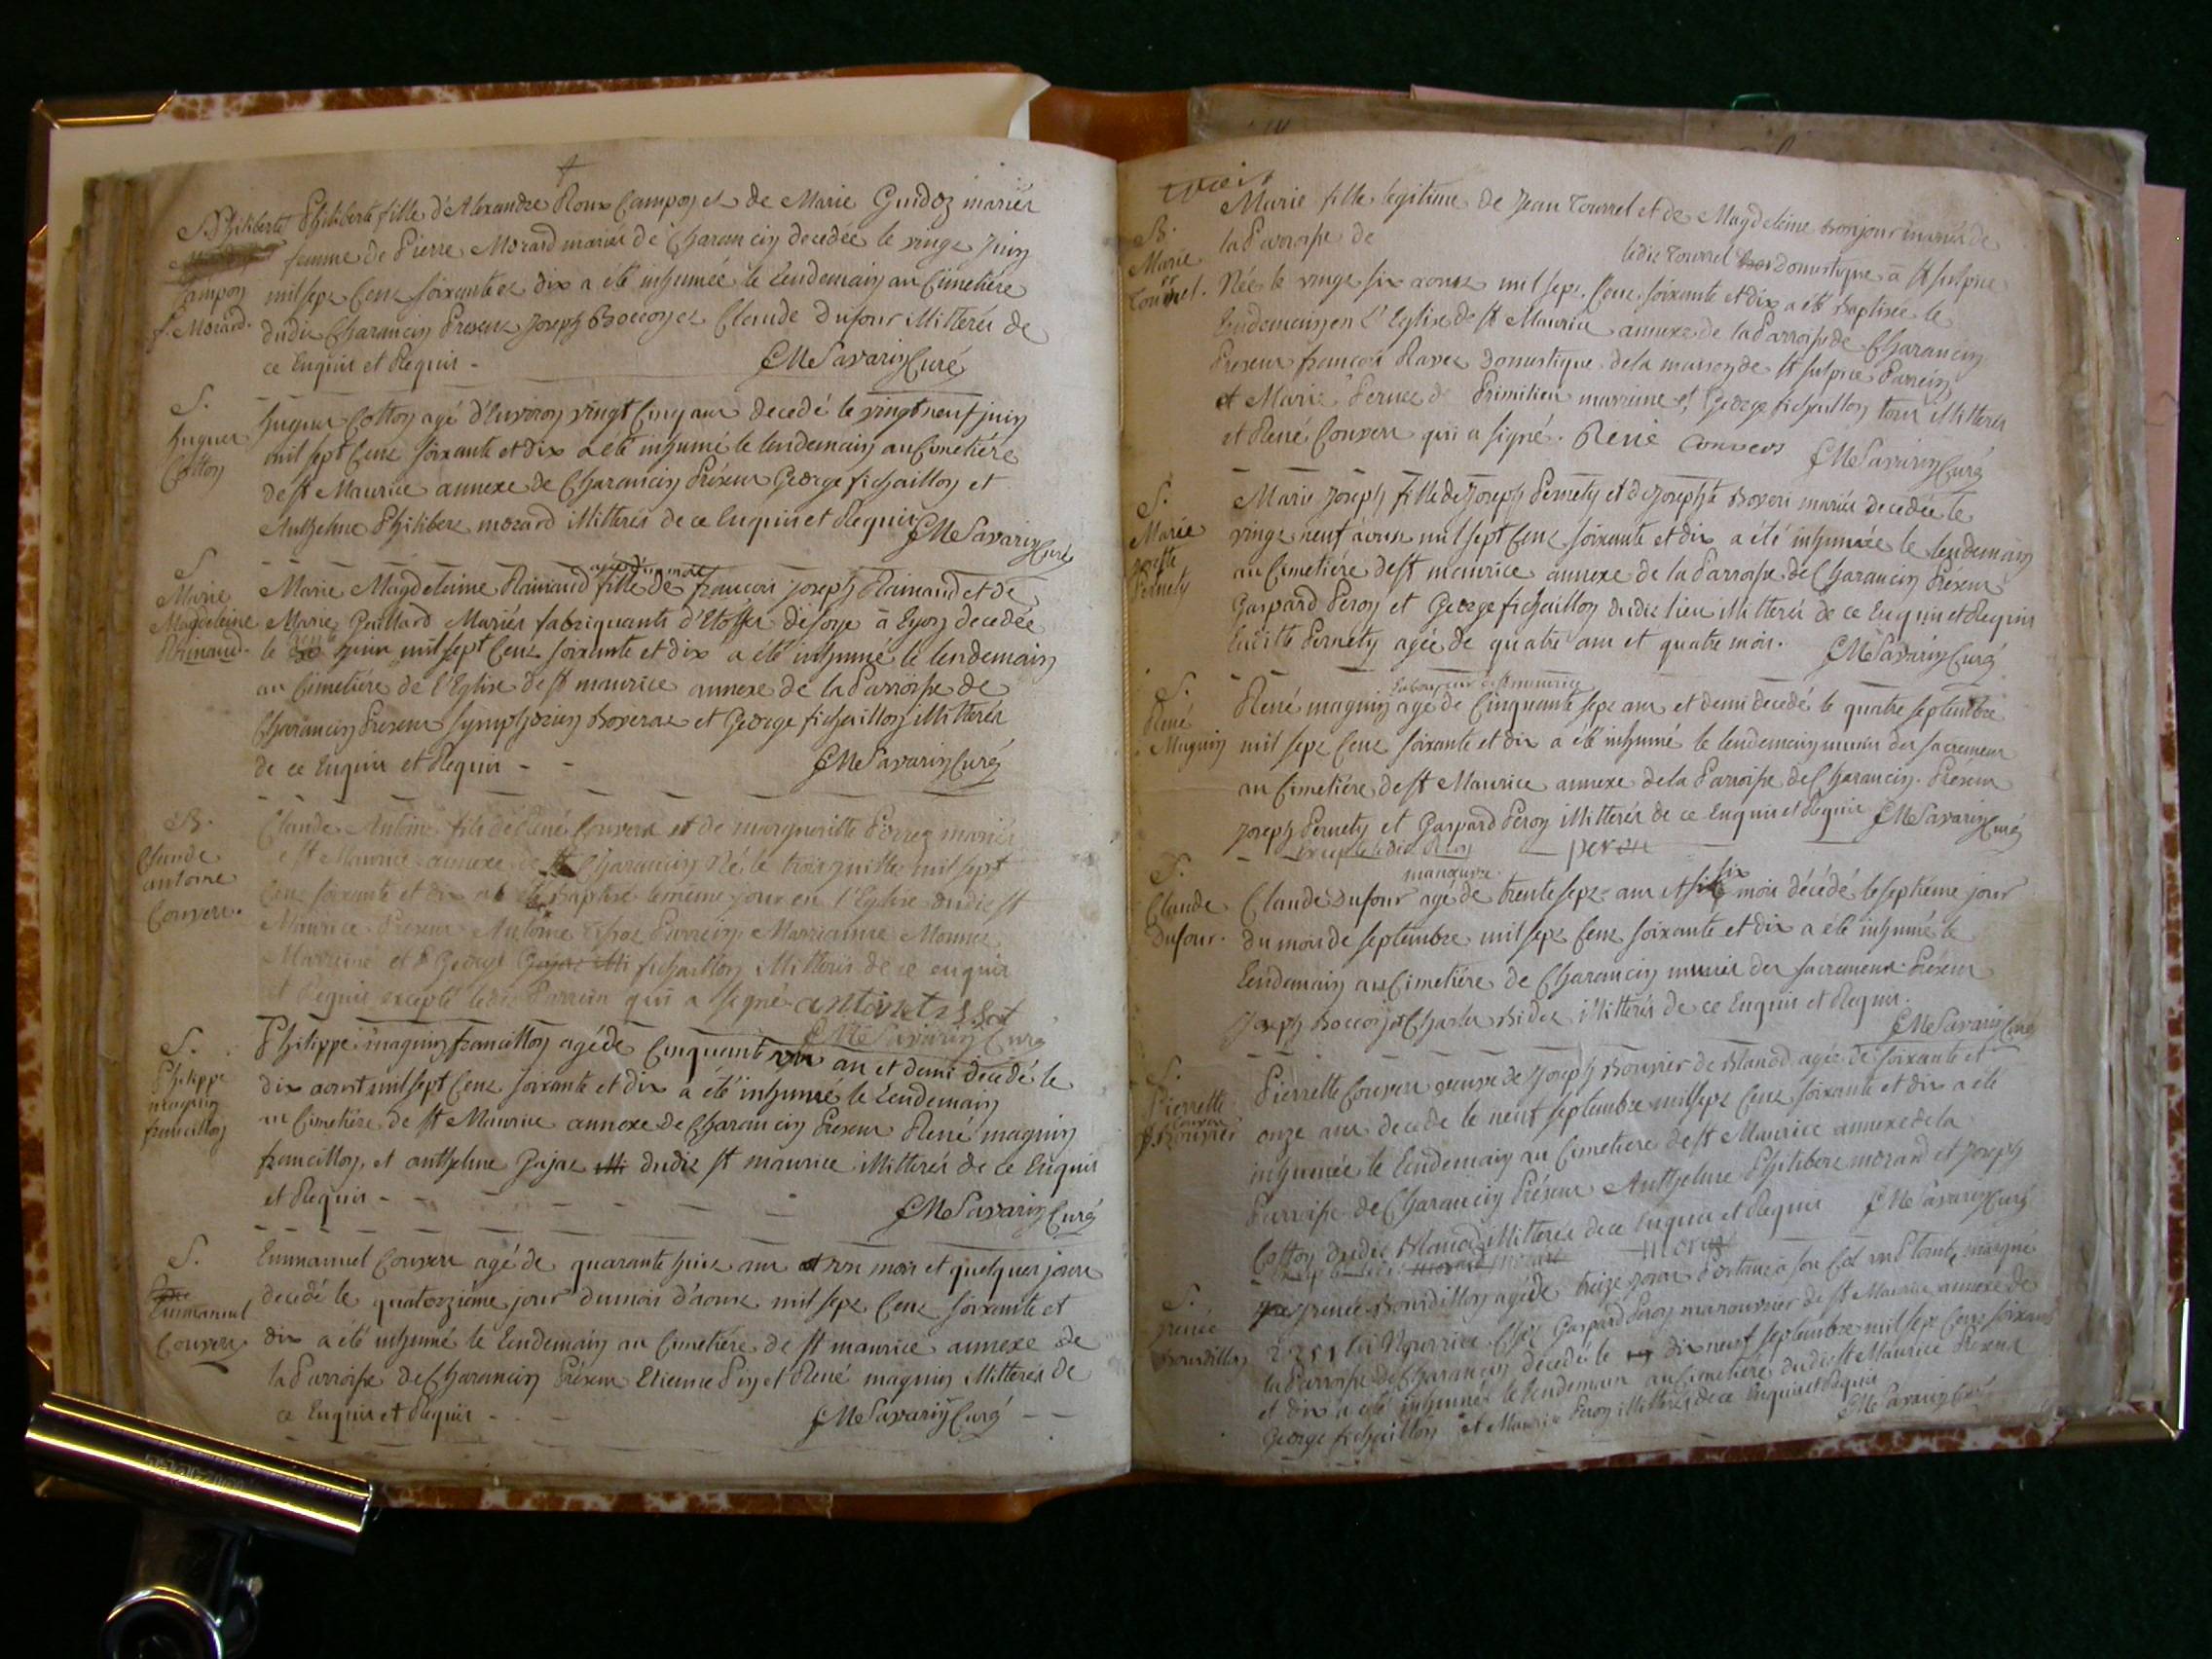 S. Philiberte Philiberte fille d'Alexandre Roux Campoy et de Marie Guidoz mariés
femme de Pierre Morard mariés de Charancin decedée le vingt Juin
Campoy
mil sept Cent soixante et dix a été inhumée le Lendemain au Cimetiére
f. Morard.
dudit Charancin Presens Joseph Boccoz et Claude Dufour illitterés de
ce Enquis et Requis -
CMSavarin Curé
S.
hugues
Cotton
hugues Cotton agé d'Environ vingt Cinq ans decedé le vingt neuf juin
mil sept Cent soixante et dix a été inhumé le lendemain au Cimetiére
de st Maurice annexe de Charancin Présens George fichaillon et
Anthelme Philibert morard illitterés de ce Enquis et Requis CMSavarin Curé
S
Marie
Magdeleine
Rainaud.
Marie Magdeleine Rainaud fille de francois joseph Rainaud et de
Marie Gaillard Mariés fabriquants d'Etoffes de soye à Lyon decedée
le juin mil sept Cent soixante et dix a été inhumé le lendemain
au Cimetiére de l'Eglise de st maurice annexe de la Parroisse de
Charancin Presens Symphorien Boverat et George fichaillon illitterés
de ce Enquis et Requis - -
CMSavarin Curé
B.
Claude
antoine
Convers.
Claude Antoine fils de René Convers et de margueritte Perrez mariés
st Maurice annexe de Charancin Né le trois juillet mil sept
Cent soixante et dix a été Baptisé le même jour en l'Eglise dudit st
Maurice Presens Antoine Tissot Parrein Marrianne Monnet
Marreine et George fichaillon illitterés de ce enquis
et Requis excepté ledit Parrein qui a signé antoine tissot
CMSavarin Curé
S.
Philippe
magnin
francillon
Philippe magnin francillon agé de Cinquante un an et demi decedé le
dix aoust mil sept Cent soixante et dix a été inhumé le Lendemain
au Cimetiére de st Maurice annexe de Charancin Presens René magnin
francillon, et anthelme Gajac dudit st maurice illitterés de ce Enquis
et Requis -
CMSavarin Curé
S.
Emmanuel
Convers
Emmanuel Convers agé de quarante huit ans et un mois et quelques jours
decedé le quatorziéme jour du mois d'aoust mil sept Cent soixante et
dix a été inhumé le Lendemain au Cimetiére de st maurice annexe de
la Parroisse de Charancin Présens Etienne Pin et René magnin illitterés de
ce Enquis et Requis -
CMSavarin Curé
B.
Marie
Tourrel.
Marie fille legitime de Jean Tourrel et de Magdeleine Bonjour mariés de
la Parroisse de
ledit Tourrel Domestique à st sulpice
Née le vingt six aoust mil sept Cent soixante et dix a été Baptisée le
Lendemain en l'Eglise de st Maurice annexe de la Parroisse de Charancin
Presens francois Ravet Domestique de la maison de st sulpice Parrein
et Marie Pernet de Primilieu marreine et George fichaillon tous illitterés
et René Convers qui a signé. René Convers CMSavarin Curé
S.
Marie
Pernety
Marie Joseph fille de Joseph Pernety et de Josephte Boveri mariés decedée le
vingt neuf aoust mil sept Cent soixante et dix a été inhumée le lendemain
au Cimetiére de st maurice annexe de la Parroisse de Charancin Présens
Gaspard Peroy et George fichaillon dudit lieu illitterés de ce Enquis et Requis
Ladite Pernety agée de quatre ans et quatre mois. CMSavarin Curé
S.
René
Magnin
laboureur à st maurice
René magnin agé de Cinquante sept ans et demi decedé le quatre septembre
mil sept Cent soixante et dix a été inhumé le lendemain munis des sacremens
au Cimetiére de st Maurice annexe de la Parroisse de Charancin. Présens
Joseph Pernety et Gaspard Peroy illitterés de ce Enquis et Requis CMSavarin Curé
excepté ledit Peroy
S.
Claude
Dufour.
manœuvre
Claude Dufour agé de trente sept ans et six mois décédé le septième jour
du mois de septembre mil sept Cent soixante et dix a été inhumé le
Lendemain au Cimetiére de Charancin munis des sacremens Présens
Joseph Boccoz et Charles Bidet illitterés de ce Enquis et Requis.
CMSavarin Curé
S.
Pierrette
Convers
f. Bouvier
Pierrette Convers veuve de Joseph Bouvier de Blanod agée de soixante et
onze ans decedé le neuf septembre mil sept Cent soixante et dix a été
inhumée le Lendemain au Cimetiere de st Maurice annexe de la
Parroisse de Charancin Présens Anthelme Philibert morard et Joseph
Cotton dudit Blanod illitterés de ce Enquis et Requis CMSavarin Curé
S.
Bourdillon
Bourdillon agé de treize jours portant à son Col un Plomb marqué
en Nourrice chez Gaspard Peroy manouvrier de st Maurice annexe de
la Parroisse de Charancin decedé le dix neuf septembre mil sept Cent soixante
et dix a été inhumé le lendemain au Cimetiere dudit st Maurice Presens
George fichaillon et Maurice Peroy illitterés de ce Enquis et Requis
CMSavarin Curé